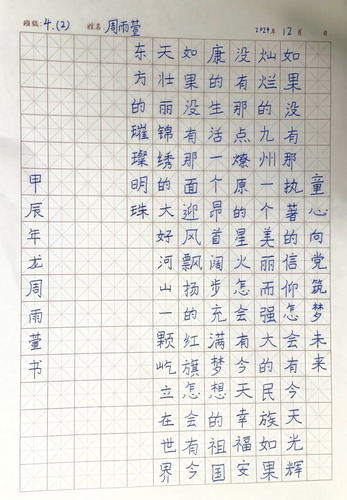 班级: 4.(2) 姓名 周雨萱 2024年 12月 日
童心向党筑梦未来
如果没有那执著的信仰怎会有今天光辉
灿烂的九州一个美丽而强大的民族如果
没有那点燎原的星火怎会有今天幸福安
康的生活一个昂首阔步充满梦想的祖国
如果没有那面迎风飘扬的红旗怎会有今
天壮丽锦绣的大好河山一颗屹立在世界
东方的璀璨明珠
甲辰年龙周雨萱书